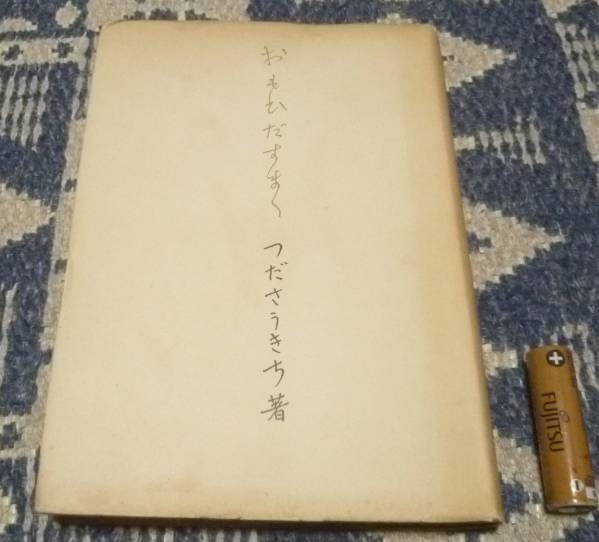 おもひだすまゝ つださうきち著
FUJITSU